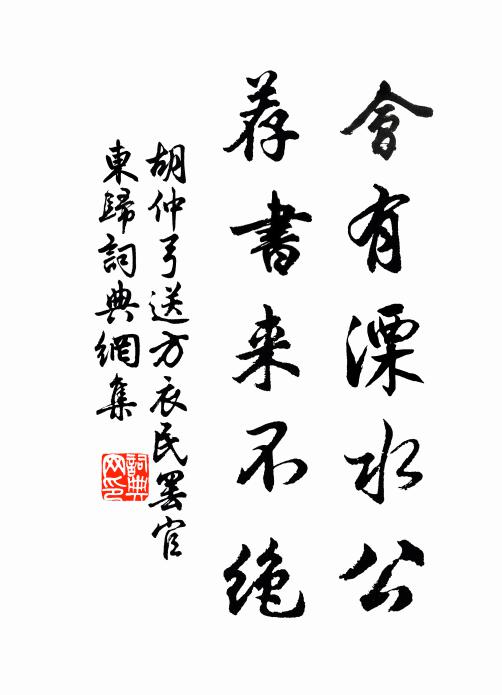 會有溧水公
荐書来不绝
胡仲弓送方衣民罢官
東歸詞典網集
詞典
网印